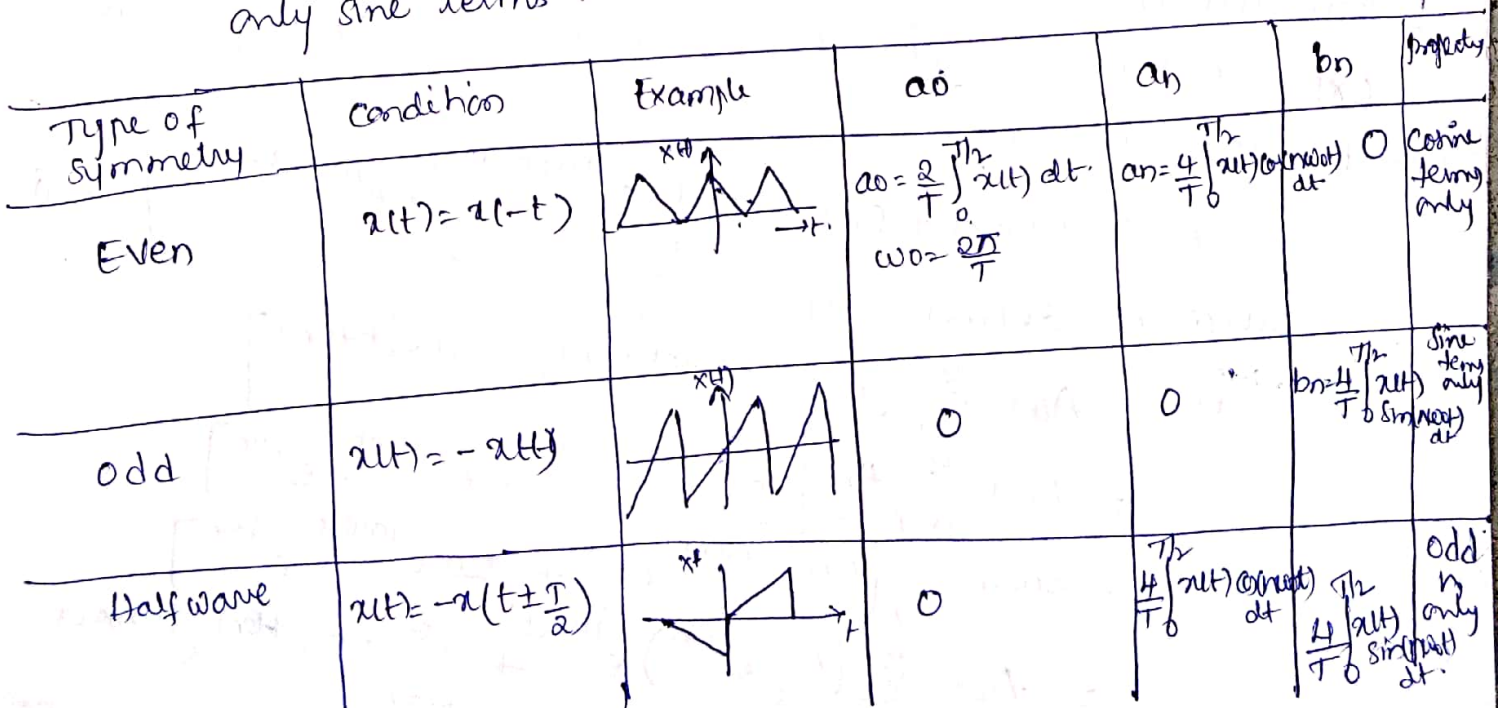 only sine terms
Type of symmetry | condition | Example | a0 | an | bn | property
Even | x(t) = x(-t) | x(t) → t. | a0 = 2/T ∫_0^{T/2} x(t) dt. ω0 = 2π/T | an = 4/T ∫_0^{T/2} x(t) cos(nω0t) dt | 0 | Cosine terms only
odd | x(t) = - x(-t) | x(t) | 0 | 0 | bn = 4/T ∫_0^{T/2} x(t) sin(nω0t) dt | Sine terms only
Half wave | x(t) = -x(t ± T/2) | xt t | 0 | 4/T ∫_0^{T/2} x(t) cos(nω0t) dt | 4/T ∫_0^{T/2} x(t) sin(nω0t) dt. | Odd n only